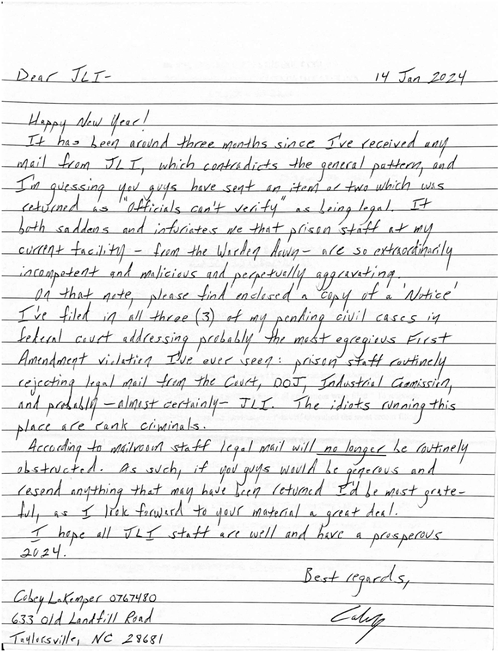 Dear JLI-
14 Jan 2024
Happy New Year!
It has been around three months since I've received any
mail from JLI, which contradicts the general pattern, and
I'm guessing you guys have sent an item or two which was
returned as "Officials can't verify" as being legal. It
both saddens and infuriates me that prison staff at my
current facility - from the Warden down - are so extraordinarily
incompetent and malicious and perpetually aggravating.
On that note, please find enclosed a copy of a 'Notice'
I've filed in all three (3) of my pending civil cases in
federal court addressing probably the most egregious First
Amendment violation I've ever seen: prison staff routinely
rejecting legal mail from the Court, DOJ, Industrial Commission,
and probably - almost certainly - JLI. The idiots running this
place are rank criminals.
According to mailroom staff legal mail will no longer be routinely
obstructed. As such, if you guys would be generous and
resend anything that may have been returned I'd be most grate-
ful, as I look forward to your material a great deal.
I hope all JLI staff are well and have a prosperous
2024.
Best regards,
Cobey LaKemper 0767480
633 Old Landfill Road
Taylorsville, NC 28681
Cobey